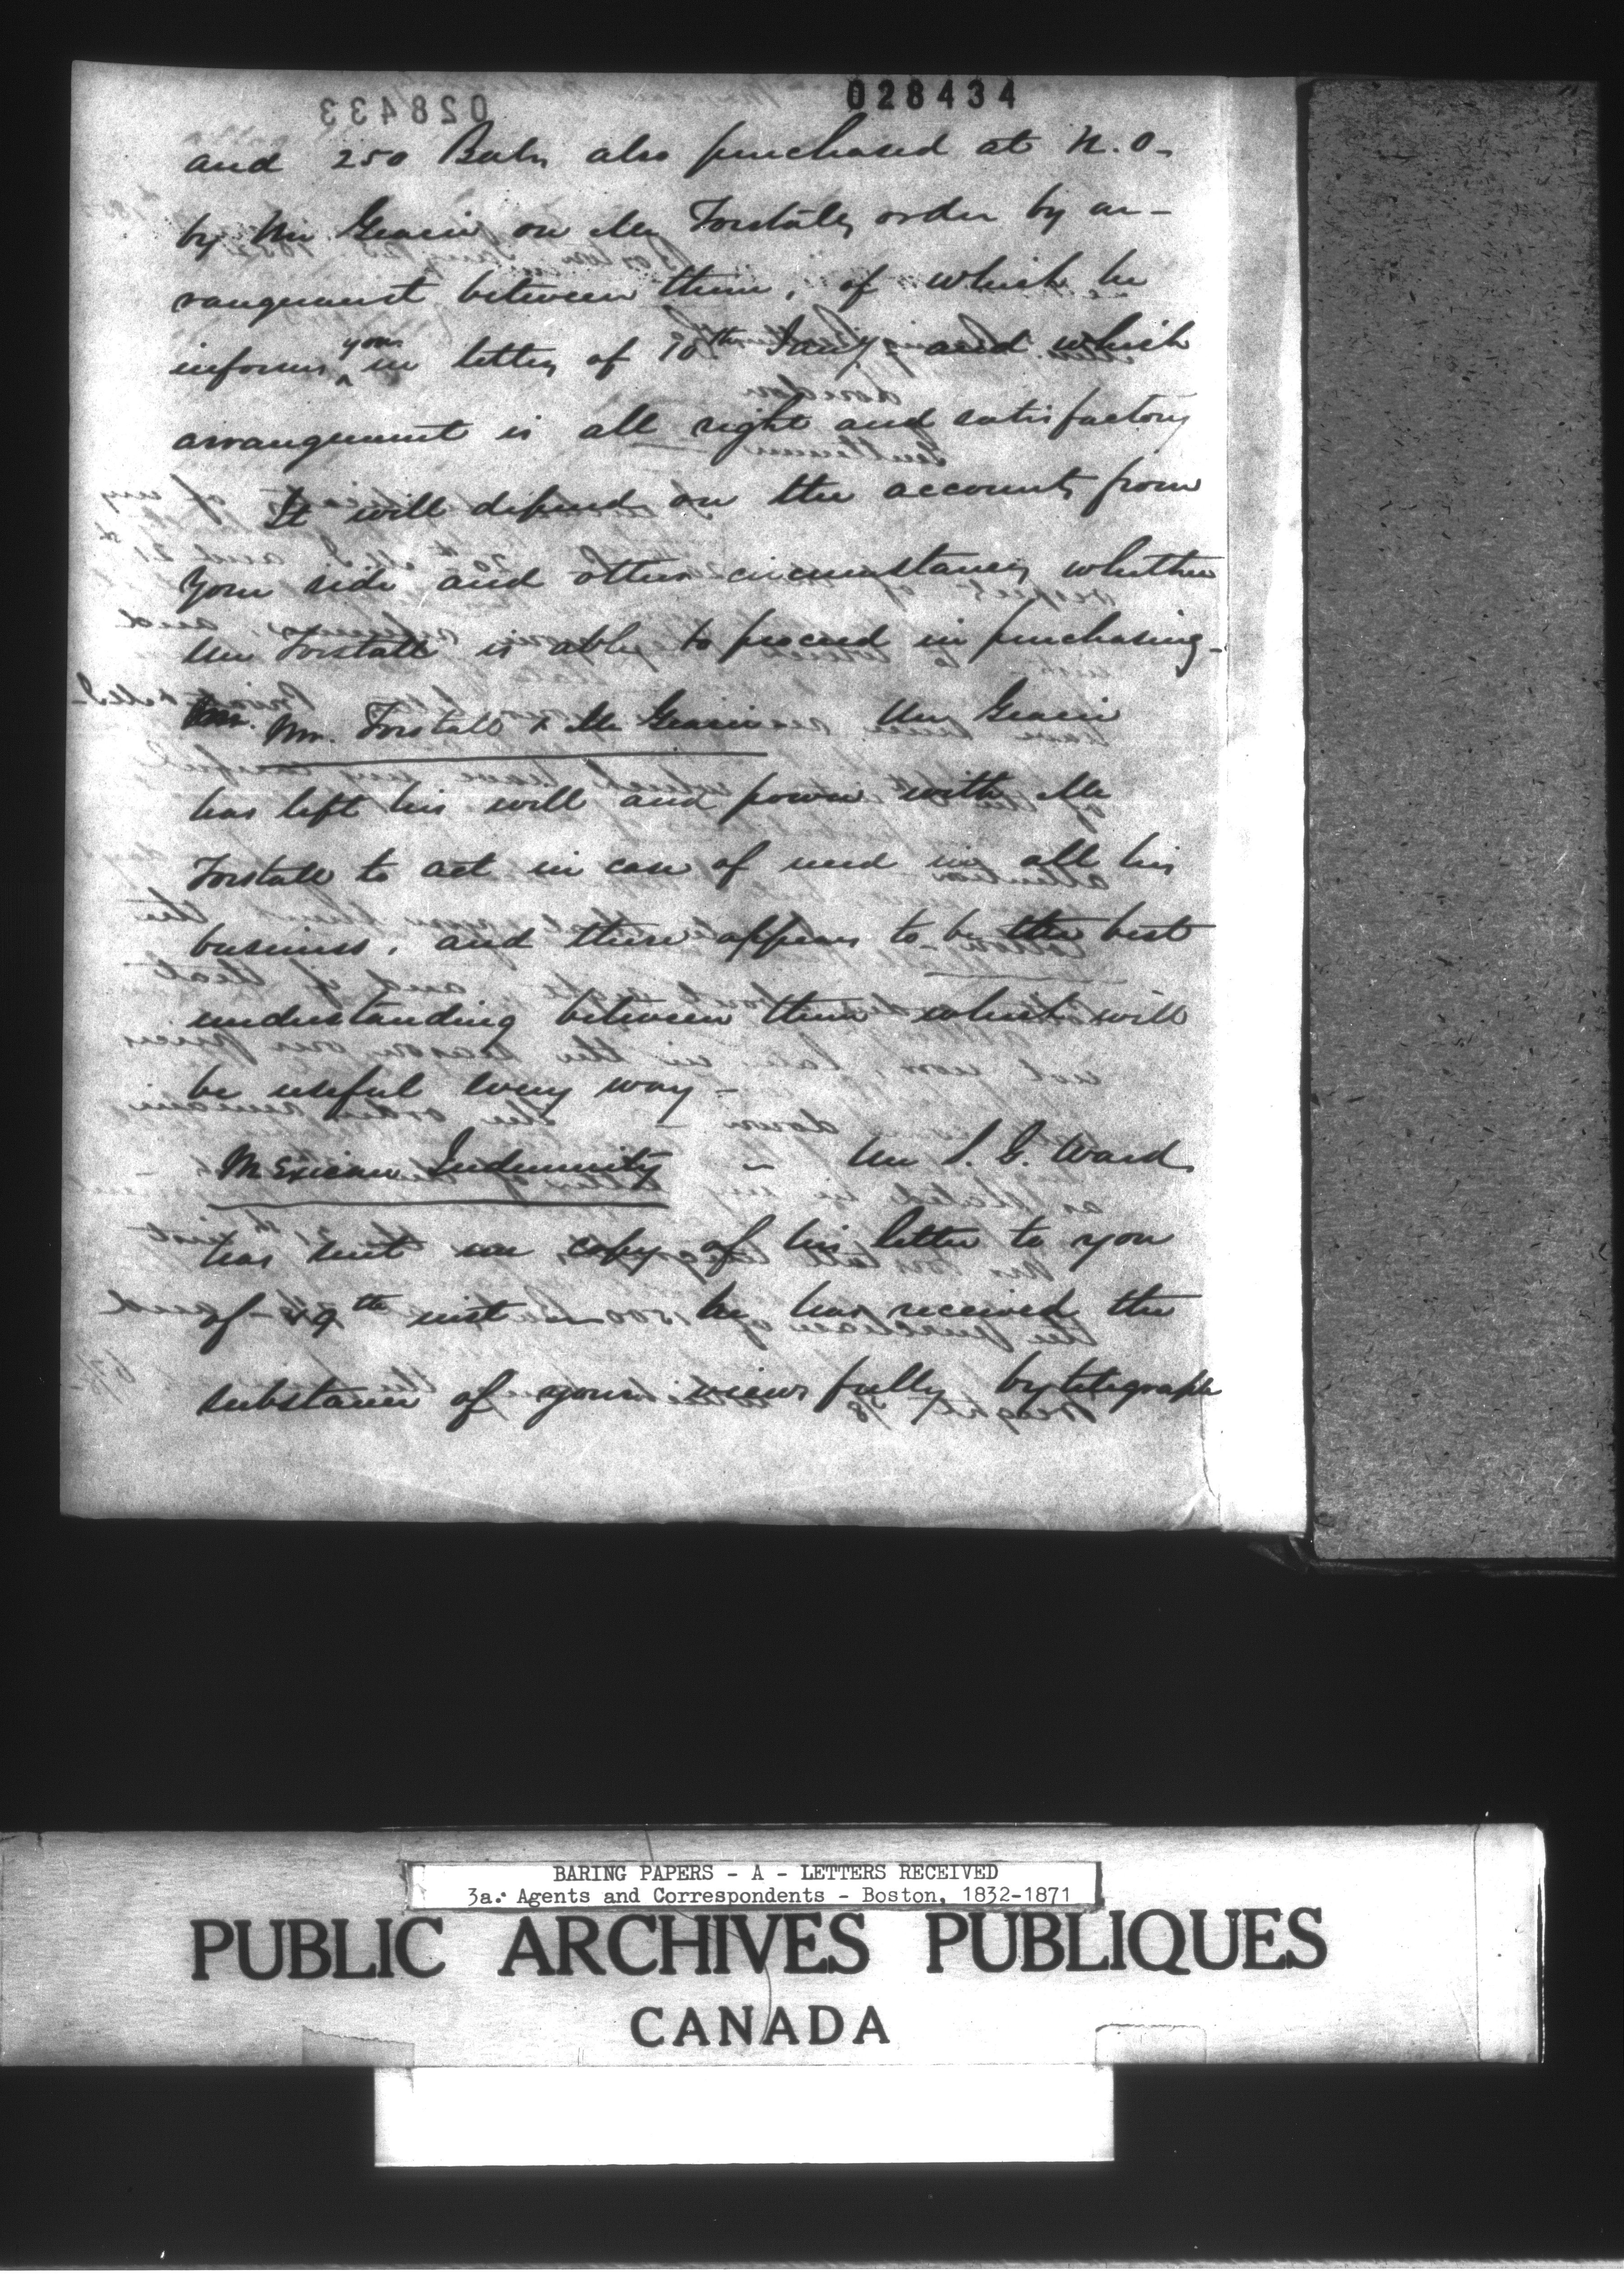 028433
028434
and 250 Bales also purchased at N.O-
by Mr Gracie on Mr Forstalls order by ar-
rangement between them, of which he
informs ^you in letter of 10th Jany, and which
arrangement is all right and satisfactory
It will depend on the accounts from
your side and other circumstances whether
Mr Forstall is able to proceed in purchasing-
Mr. Forstall & Mr Gracie Mr Gracie
has left his will and power with Mr
Forstall to act in case of need in all his
business, and there appears to be the best
understanding between them which will
be useful every way -
Mexican Indemnity - Mr S. G. Ward
has sent me copy of his letter to you
of 9th inst - he has received the
substance of your views fully by telegraph
BARING PAPERS - A - LETTERS RECEIVED
3a. Agents and Correspondents - Boston, 1832-1871
PUBLIC ARCHIVES PUBLIQUES
CANADA